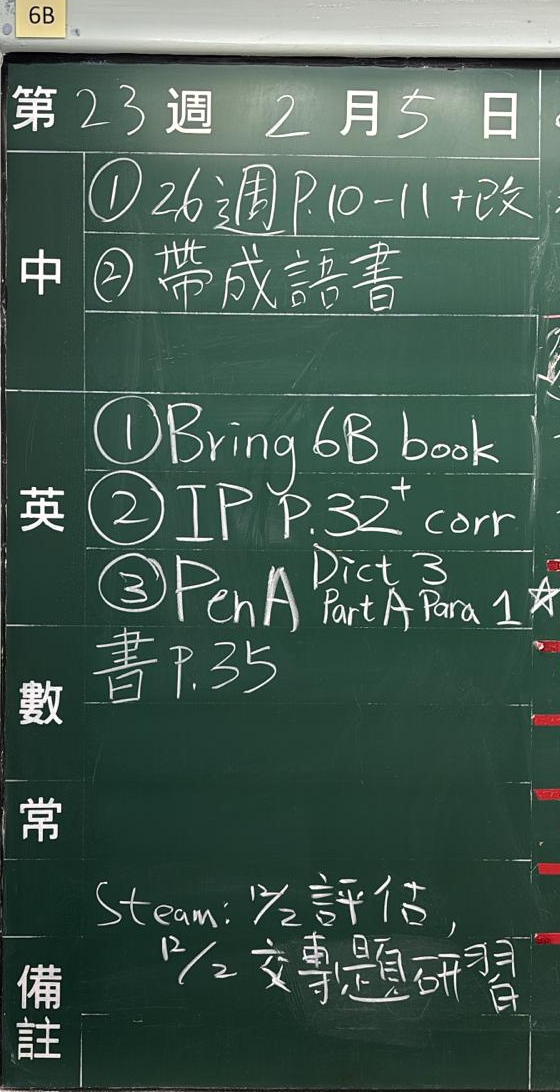 6B
第23週 2月5日
中
① 26週 P.10-11 +改
② 帶成語書
英
① Bring 6B book
② IP P.32+ corr
③ PenA Dict 3
Part A Para 1 ☆
數
書 P.35
常
Steam: 12/2 評估,
12/2 交專題研習
備註